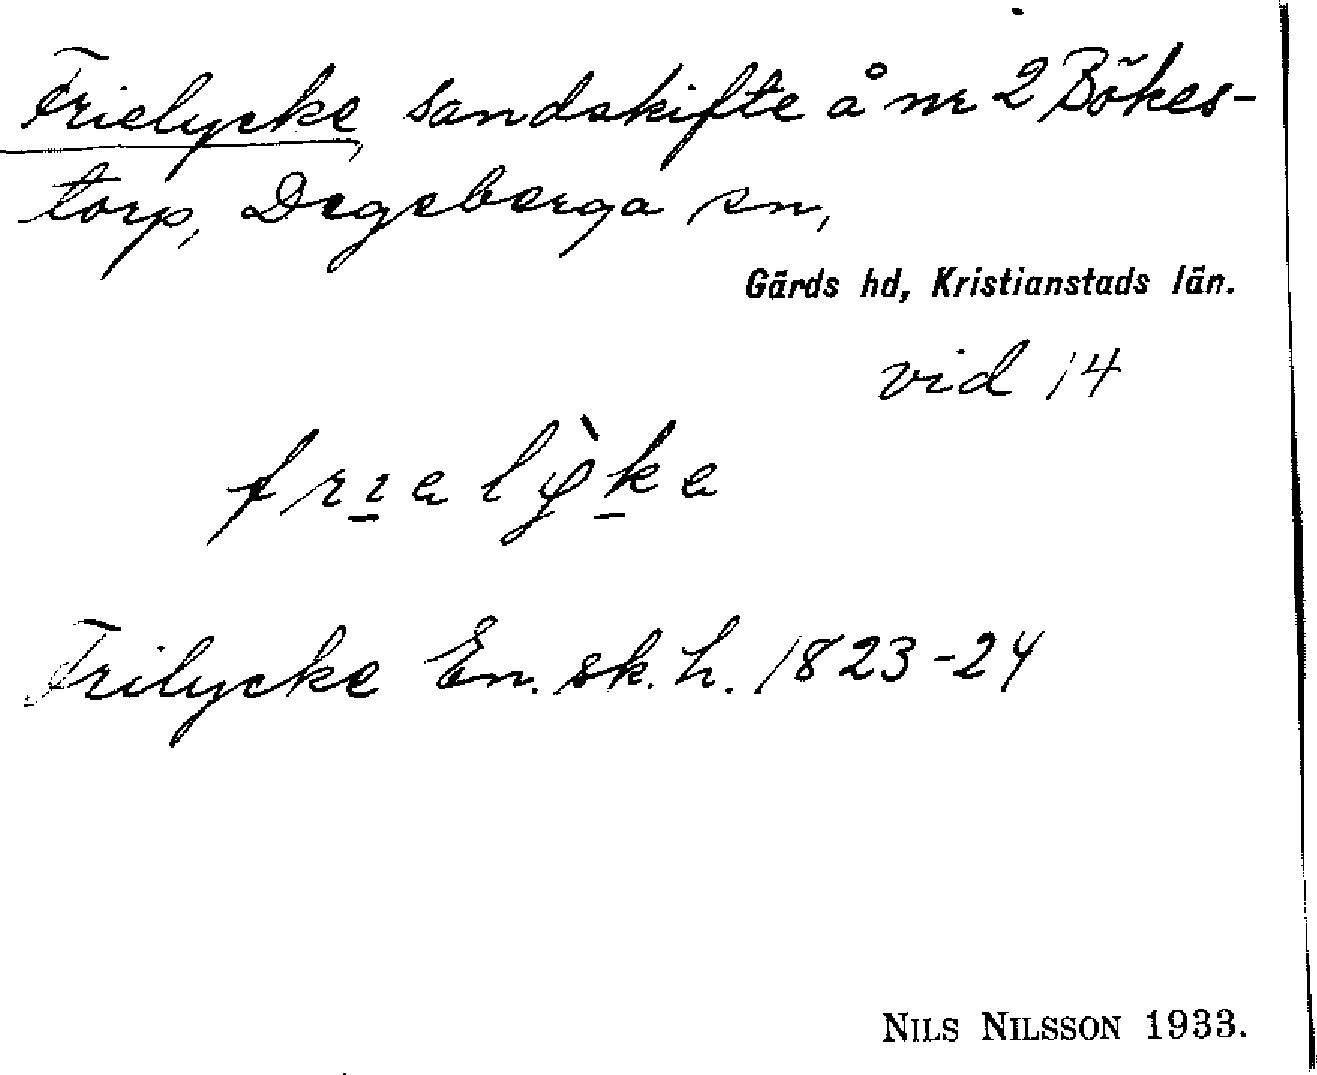 Frielycke, sandskifte å nr 2 Bökes-
torp, Degeberga sn,
Gärds hd, Kristianstads län.
vid 14
Frilycke En. sk. h. 1823-24
NILS NILSSON 1933.